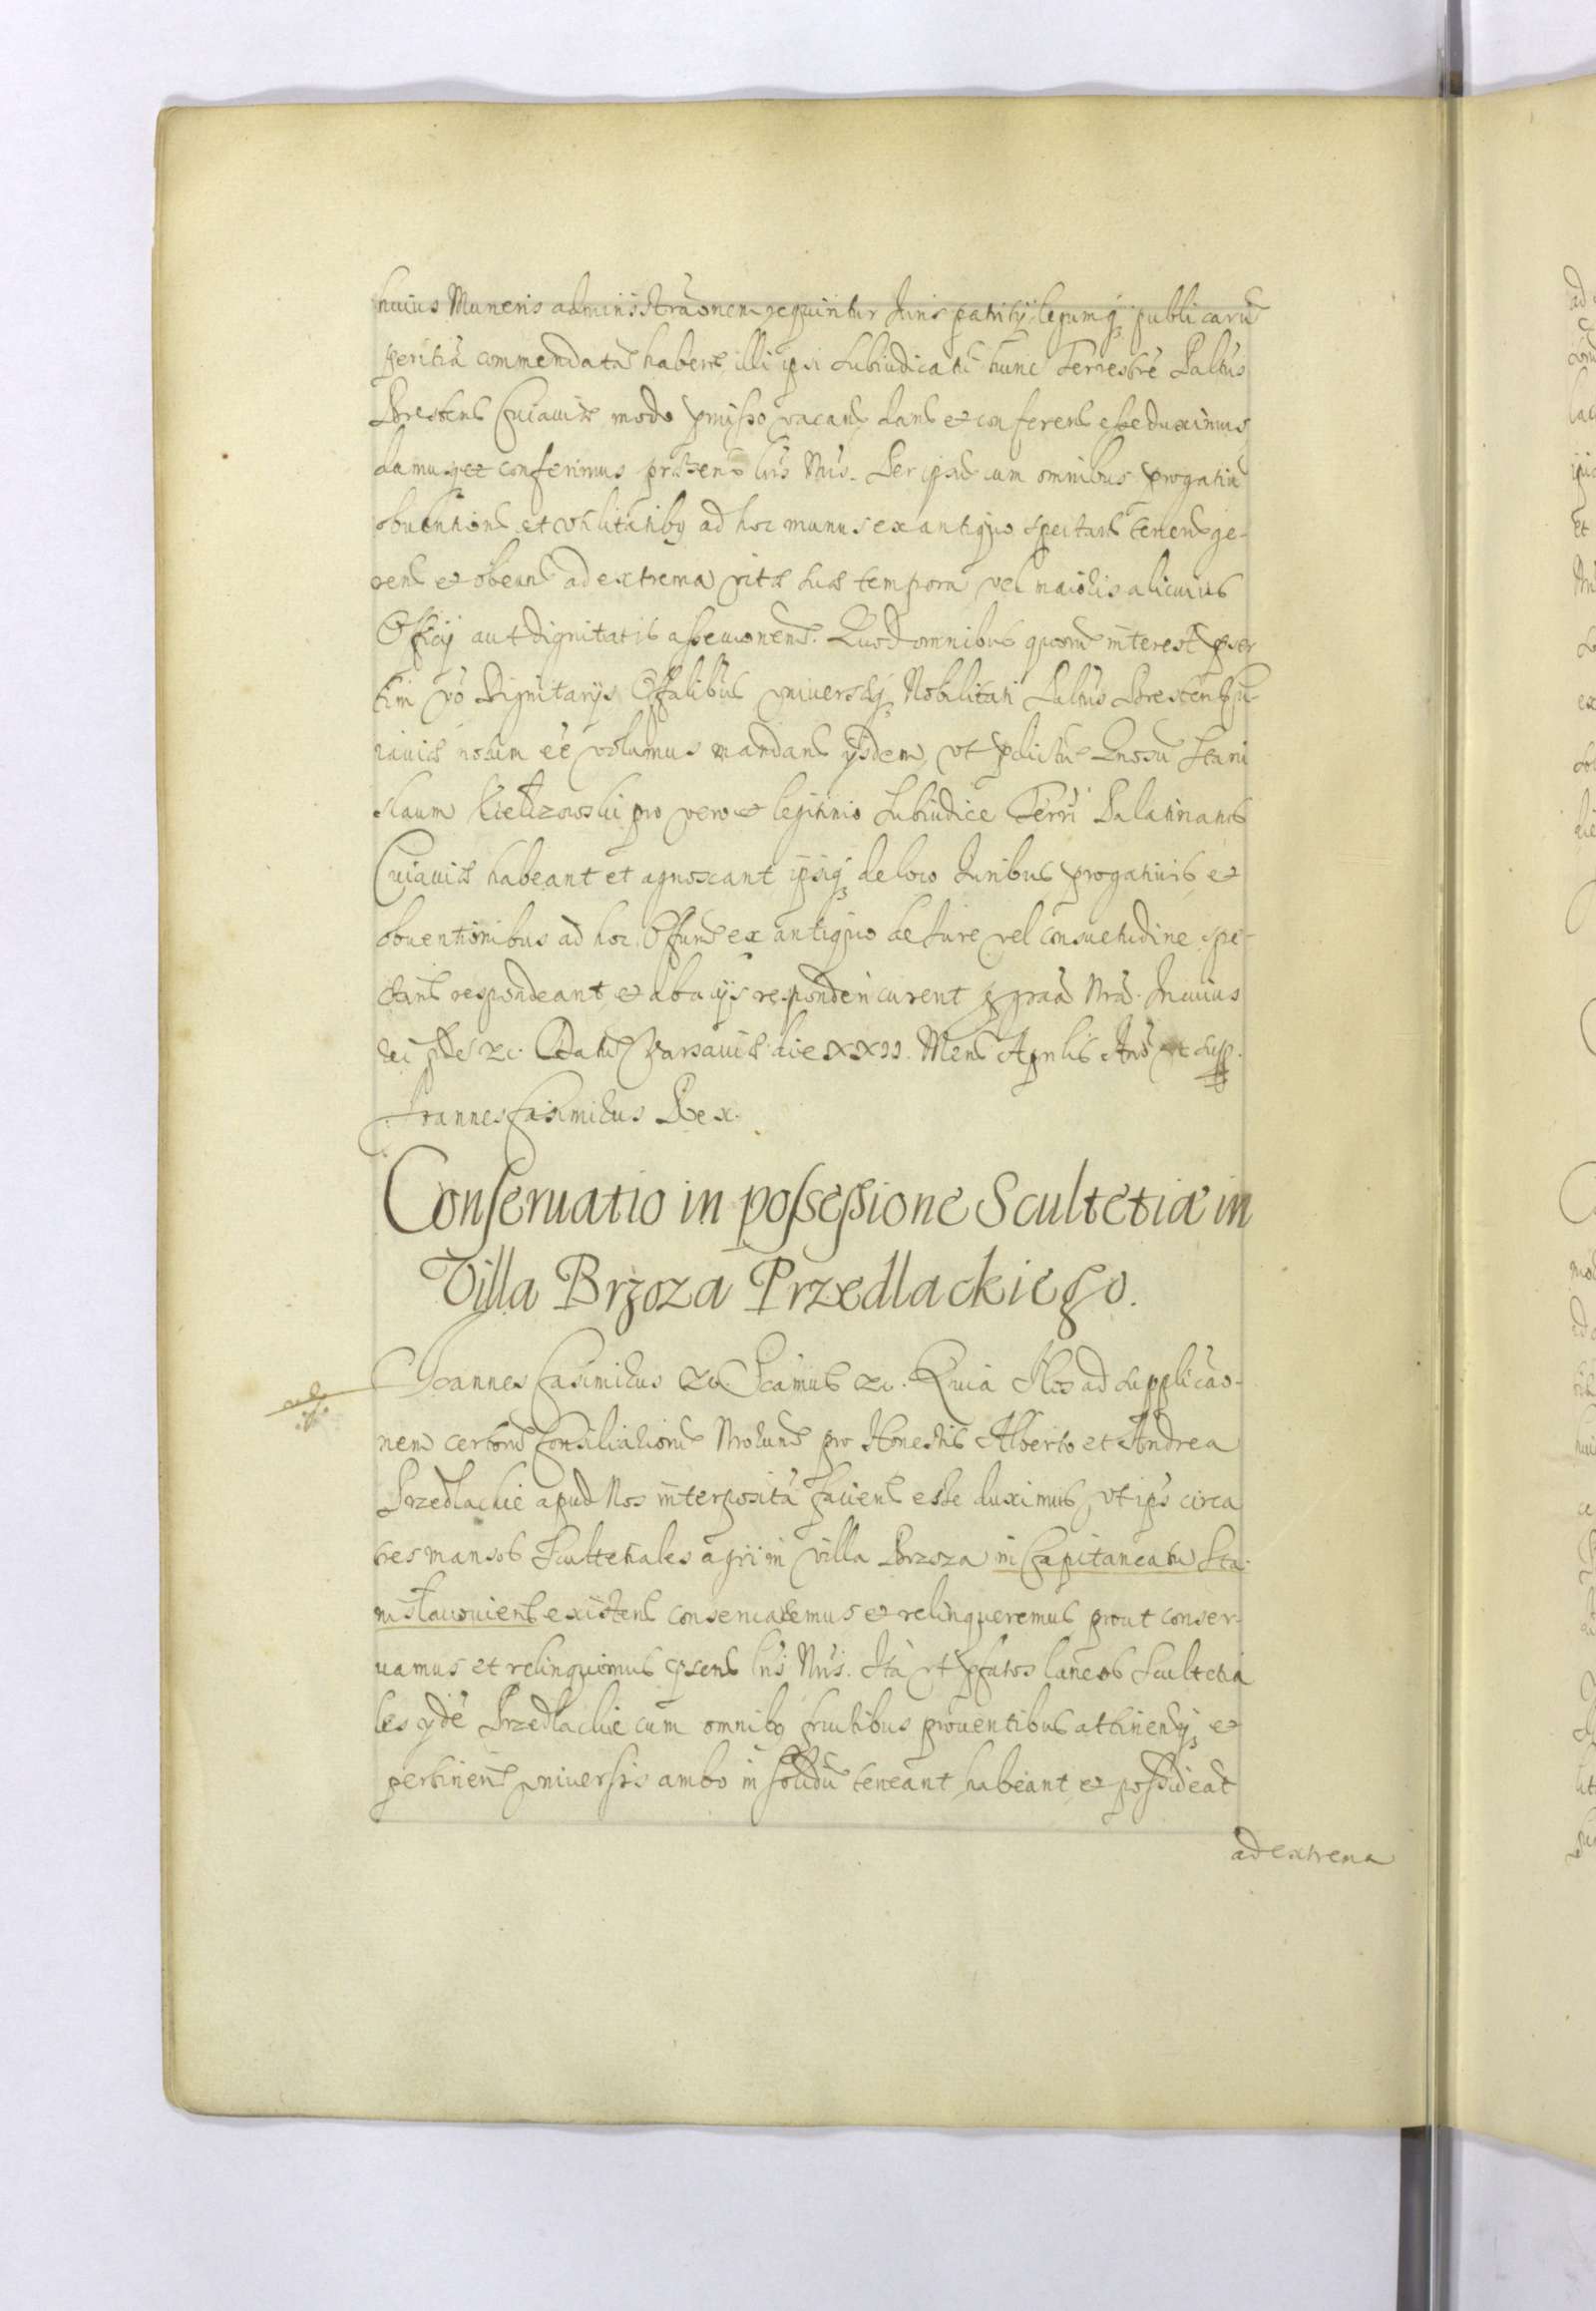 huius Muneris administrãonem requiritur Iuris patrij, legumq; publicarũ
peritiã commendatã haberet, illi ipsi Subiudicatũ hunc Terrestrẽ Palt̃us
Brestens Cuiauiæ modo p̃misso vacan, dand et conferend esse duximus
damusq; et conferimus præsent lr̃is Nr̃is. Per ipsũ cum omnibus p̃rogatiũ
obuention et vtilitatibq ad hoc munus ex antiquo spectant tenend ge-
rend et obeund ad extrema vitæ suæ tempora vel maioris alicuius
Officij aut dignitatis assecuõnem. Quod omnibus quorũ interest p̃ser
tim ṽo Dignitarijs Offalibus vniversæq; Nobilitati Palt̃us Brestens Cu-
iauiæ notum eẽ volumus mandand ijsdem, vt p̃dictũ Gnosũ Stani
slaum Kiełczowski pro vero et legitimo Subiudice Terr̃i Palatinatus
Cuiauiæ habeant et agnoscant ipsiq; de loco Iuribus p̃rogatiuis et
obuentionibus ad hoc Off̃um ex antiquo de Iure vel consuetudine spe-
ctand respondeant, et ab alijs responderi curent p gr̃aa Nr̃a. In cuius
rei fid̃e &c. Datũ Varsauiæ die XXII. Mens Aprilis Año vt sup̃.
Ioannes Casimirus Rex.
Conseruatio in possessione Scultetiæ in
Villa Brzoza Przedlackiego.
Ioannes Casimirus &c. Sc̃amus &c. Quia Nos ad supplicaõ-
nem certorũ Consiliariorũ Nrorum pro Honestis Alberto et Andrea
Przedlackie apud Nos interpositã faciend esse duximus, vt ipõs circa
tres mansos Scultetiales agri in villa Brzoza in Capitaneatu Sta-
nisławouiens existend conseruaremus et relinqueremus, prout conser-
uamus et relinquimus p̃sent lr̃is Nr̃is. Ita vt p̃fatos laneos Scultetia
les ijdẽ Przedlackie cum omnibq fructibus prouentibus attinend; et
pertinend vniversis ambo in solidũ teneant, habeant, et possideãt
ad extrema